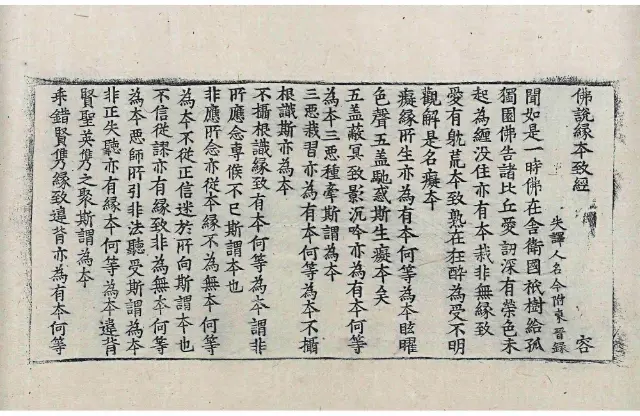 佛說緣本致經
失譯人名今附東晉錄
容
聞如是一時佛在舍衛國祇樹給孤
獨園佛告諸比丘愛詷深有榮色未
起為纏沒住亦有本栽非無緣致
愛有躭荒本致孰在狂醉為受不明
觀解是名癡本
癡緣所生亦為有本何等為本眩曜
色聲五盖馳惑斯生癡本矣
五盖蔽冥致影沉吟亦為有本何等
為本三惡種牽斯謂為本
三惡栽習亦為有本何等為本不攝
根識斯亦為本
不攝根識緣致有本何等為本謂非
所應念專𠋫不已斯謂本也
非應所念亦從本緣不為無本何等
為本不從正信迷於所向斯謂本也
不信從謬亦有緣致非為無本何等
為本惡師所引非法聽受斯謂為本
非正失聽亦有緣本何等為本違背
賢聖英儁之聚斯謂為本
乖錯賢儁緣致違背亦為有本何等